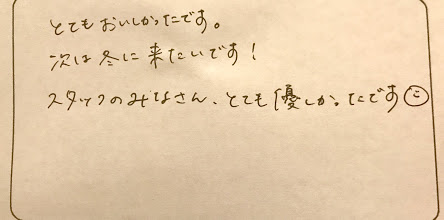 とてもおいしかったです。
次は冬に来たいです！
スタッフのみなさん、とても優しかったです☺